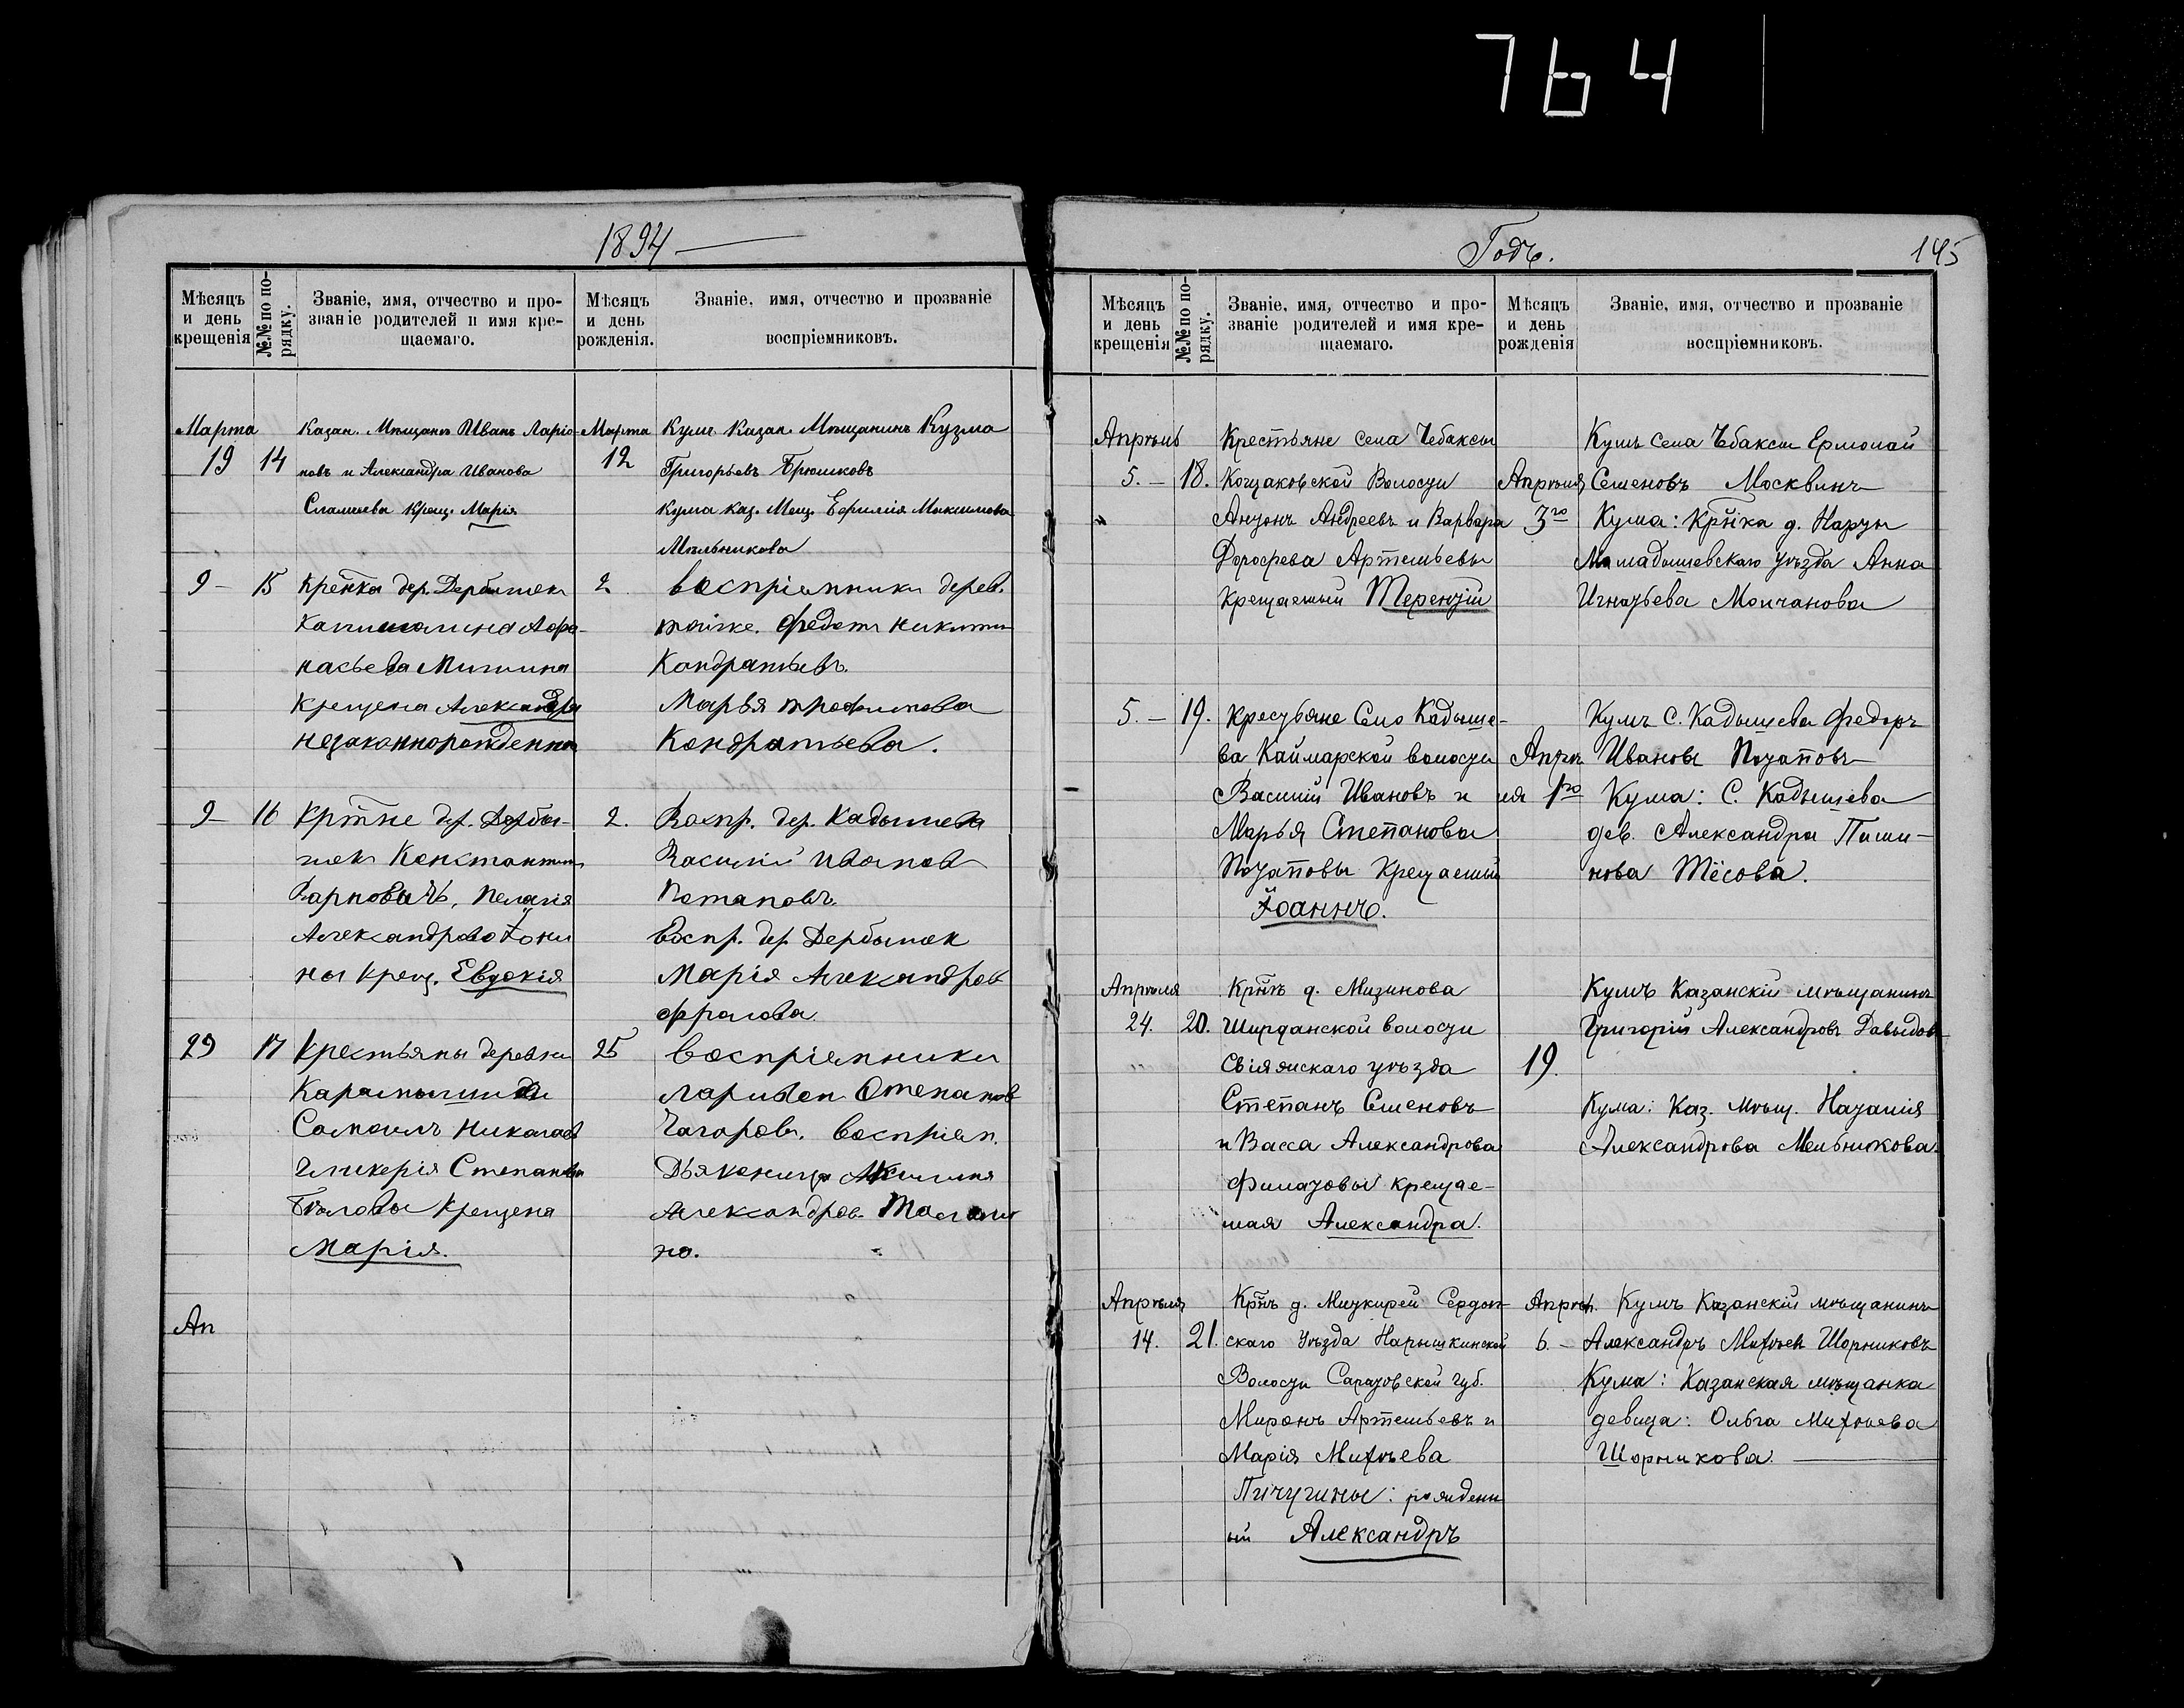 764
1894
Мѣсяцъ и день крещенія
№№ по порядку.
Званіе, имя, отчество и прозваніе родителей и имя крещаемаго.
Мѣсяцъ и день рожденія.
Званіе, имя, отчество и прозваніе воспріемниковъ.
Марта 19
14
Казан. Мѣщанъ Иванъ Ларіо-
новъ и Александра Иванова
Крещ. Марія
Марта 12
Кумъ Казан. Мѣщанинъ Кузма
Григорьевъ Брюшковъ
Кума Каз. Мѣщ. Максимова
Мѣльникова
9 —
15
дер. Дербышки
Афо-
насьева Мишина
Крещена Александра
незаконнорожденна
2
воспріемники дерев.
тойже. Федотъ Никити
Кондратьевъ.
Марья Трофимова
Кондратьева.
9 —
16
Крт̃не дер. Дербы-
шек Константин
Пелагія
Александрова
ны крещ. Евдокія
2.
Воспр. дер. Кадышева
Василій Иванов
Потаповъ.
Воспр. дер. Дербышек
Марія Александров
Фролова.
29
17
Крестьяны деревни
Самоилъ Николаев
Гликерія Степанова
Бѣловы Крещена
Марія.
25
воспріемники
Ларивон Степанов
Чагоров. воспріем.
Дьяконица
Александров.
на.
Ап
Годъ.
145
Мѣсяцъ и день крещенія
№№ по порядку.
Званіе, имя, отчество и прозваніе родителей и имя крещаемаго.
Мѣсяцъ и день рожденія
Званіе, имя, отчество и прозваніе воспріемниковъ.
Апрѣль
5. —
18.
Крестьяне села Чебаксы
Кощаковской Волости
Антонъ Андреевъ и Варвара
Дорофева Артемьевы
Крещаемый Терентій
Апрѣля
3го
Кумъ села Чбаксы Ермолай
Семеновъ Москвинъ
Кума: Кр̃нка д.
Мамадышевскаго уѣзда Анна
Игнатьева Молчанова
5. —
19.
Крестьяне Село Кадыше-
ва Каймарской волости
Василій Ивановъ и
Марья Степанова
Потаповы Крещаемый
Іоаннъ.
Апрѣ
ля 1го
Кумъ С. Кадышева Федоръ
Ивановъ Потаповъ
Кума: С. Кадышева
дев. Александра Пими-
нова Тёсова.
Апрѣля
24.
20.
Кр̃нъ д. Мизинова
Ширданской волости
Свіяжскаго уѣзда
Степанъ Семеновъ
и Васса Александрова
Филатовы крещае-
мая Александра.
19.
Кумъ Казанскій мѣщанинъ
Григорій Александровъ Давыдовъ
Кума: Каз. мѣщ. Наталія
Александрова Мельникова.
Апрѣля
14.
21.
Кр̃нъ д. Миткирей Сердоп-
скаго Уѣзда Нарышкинской
Волости Саратовской губ.
Миронъ Артемьевъ и
Марія Михѣева
Пичугины: рожденн
ый Александръ
Апрѣл.
6. —
Кумъ Казанскій мѣщанинъ
Александръ Михѣев Шорниковъ
Кума: Казанская мѣщанка
девица: Ольга Михѣева
Шорникова.